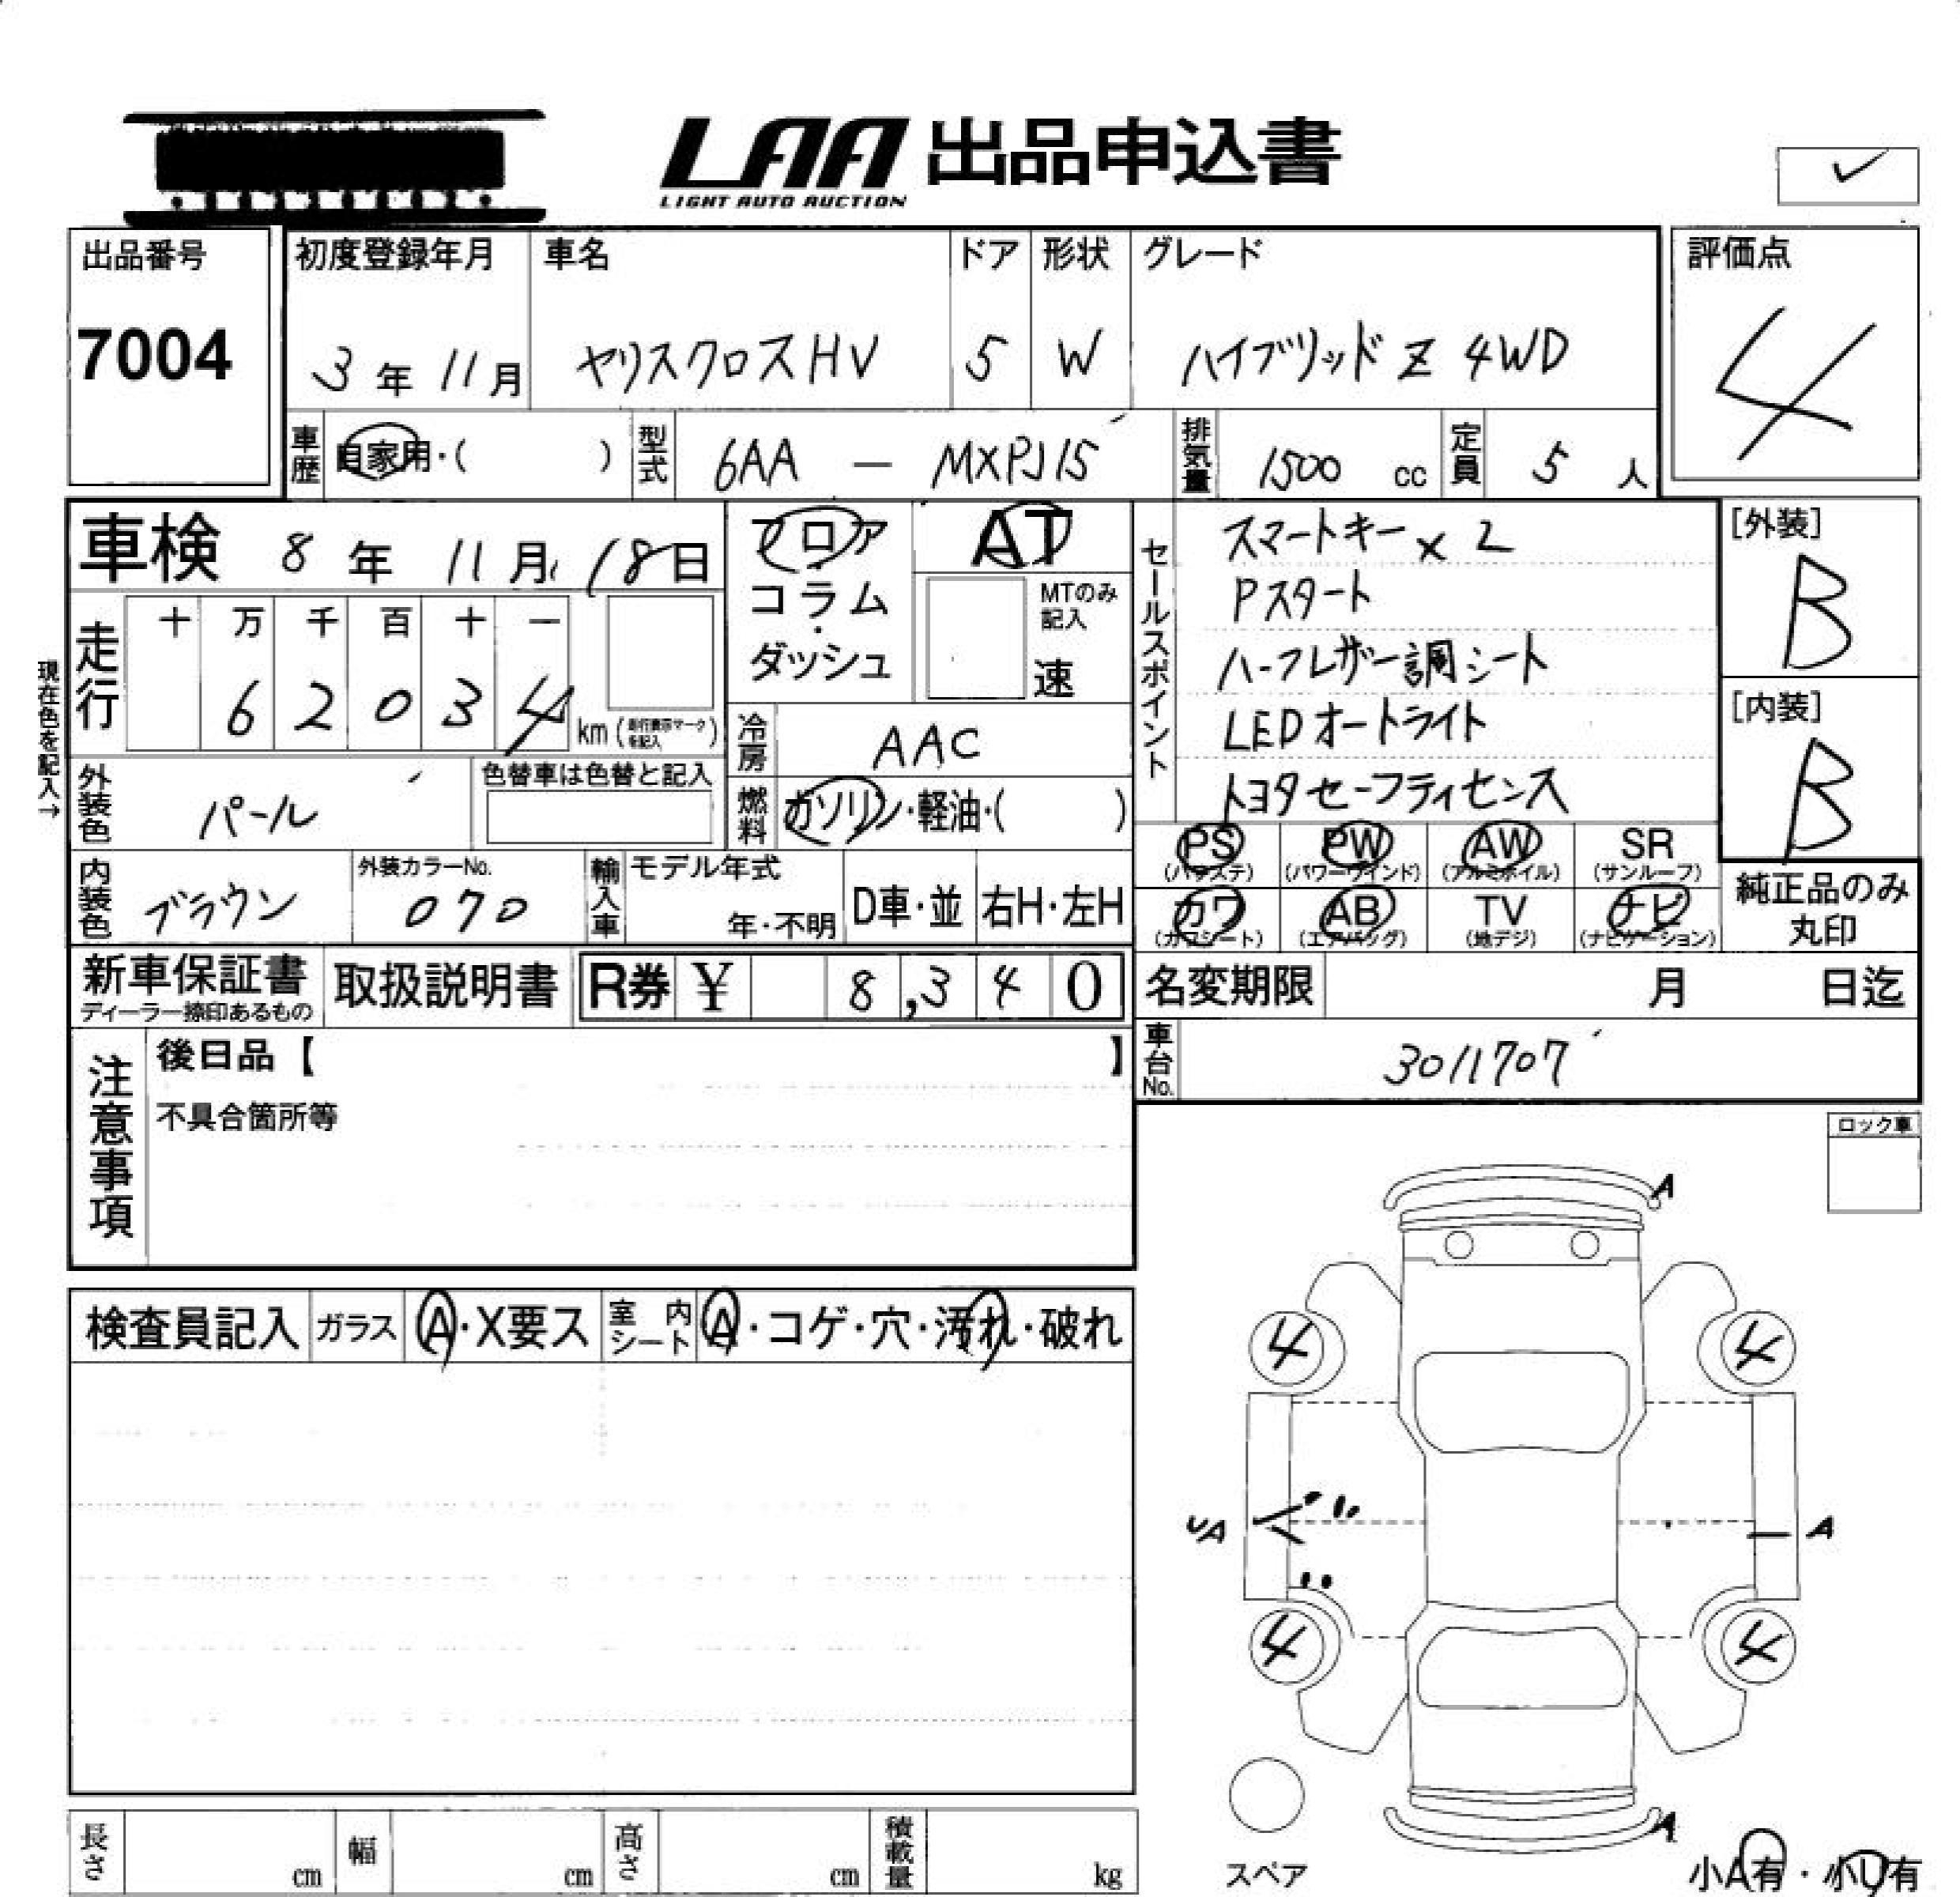 LAA 出品申込書
LIGHT AUTO AUCTION
出品番号 7004
初度登録年月 3年 11月
車名 ヤリスクロスHV
ドア 5
形状 W
グレード ハイブリッド Z 4WD
評価点 4
車歴 自家用・( )
型式 6AA — MXPJ15
排気量 1500 cc
定員 5 人
車検 8年 11月 18日
フロア・コラム・ダッシュ
AT
MTのみ記入 速
セールスポイント
スマートキー×2
Pスタート
ハーフレザー調シート
LEDオートライト
トヨタセーフティセンス
[外装] B
[内装] B
現在色を記入→
走行 十 万 千 百 十 一
6 2 0 3 4 km (走行表示マークを記入)
冷房 AAC
外装色 パール
色替車は色替と記入
燃料 ガソリン・軽油・( )
PS (パワステ) PW (パワーウインド) AW (アルミホイル) SR (サンルーフ)
カワ (カワシート) AB (エアバッグ) TV (地デジ) ナビ (ナビゲーション)
純正品のみ丸印
内装色 ブラウン
外装カラーNo. 070
輸入車 モデル年式 年・不明 D車・並 右H・左H
新車保証書 ディーラー捺印あるもの
取扱説明書
R券 ¥ 8,340
名変期限 月 日迄
車台No. 3011707
注意事項
後日品【 】
不具合箇所等
ロック車
検査員記入 ガラス A・X要ス 室内シート A・コゲ・穴・汚れ・破れ
A
4 4
UA A
4 4
A
スペア
小A有・小U有
長さ cm 幅 cm 高さ cm 積載量 kg